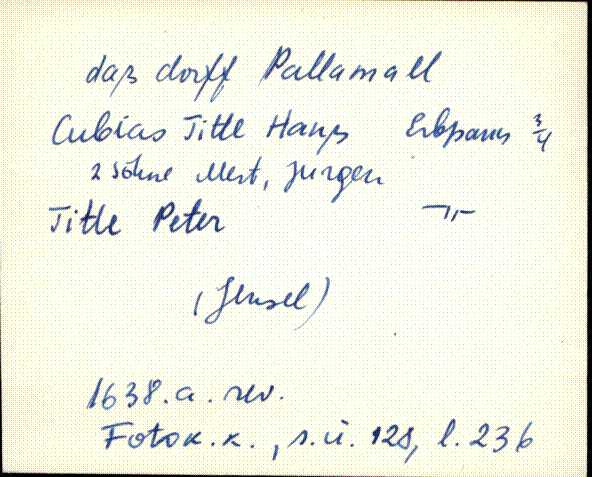 daß dorff Pallamall
Cubias Title Hanß Erbpaur 3/4
2 Söhne Mert, Jürgen
Title Peter -"-
(Jensel)
1638.a. rev.
Fotok.k., s.ü. 128, l. 236